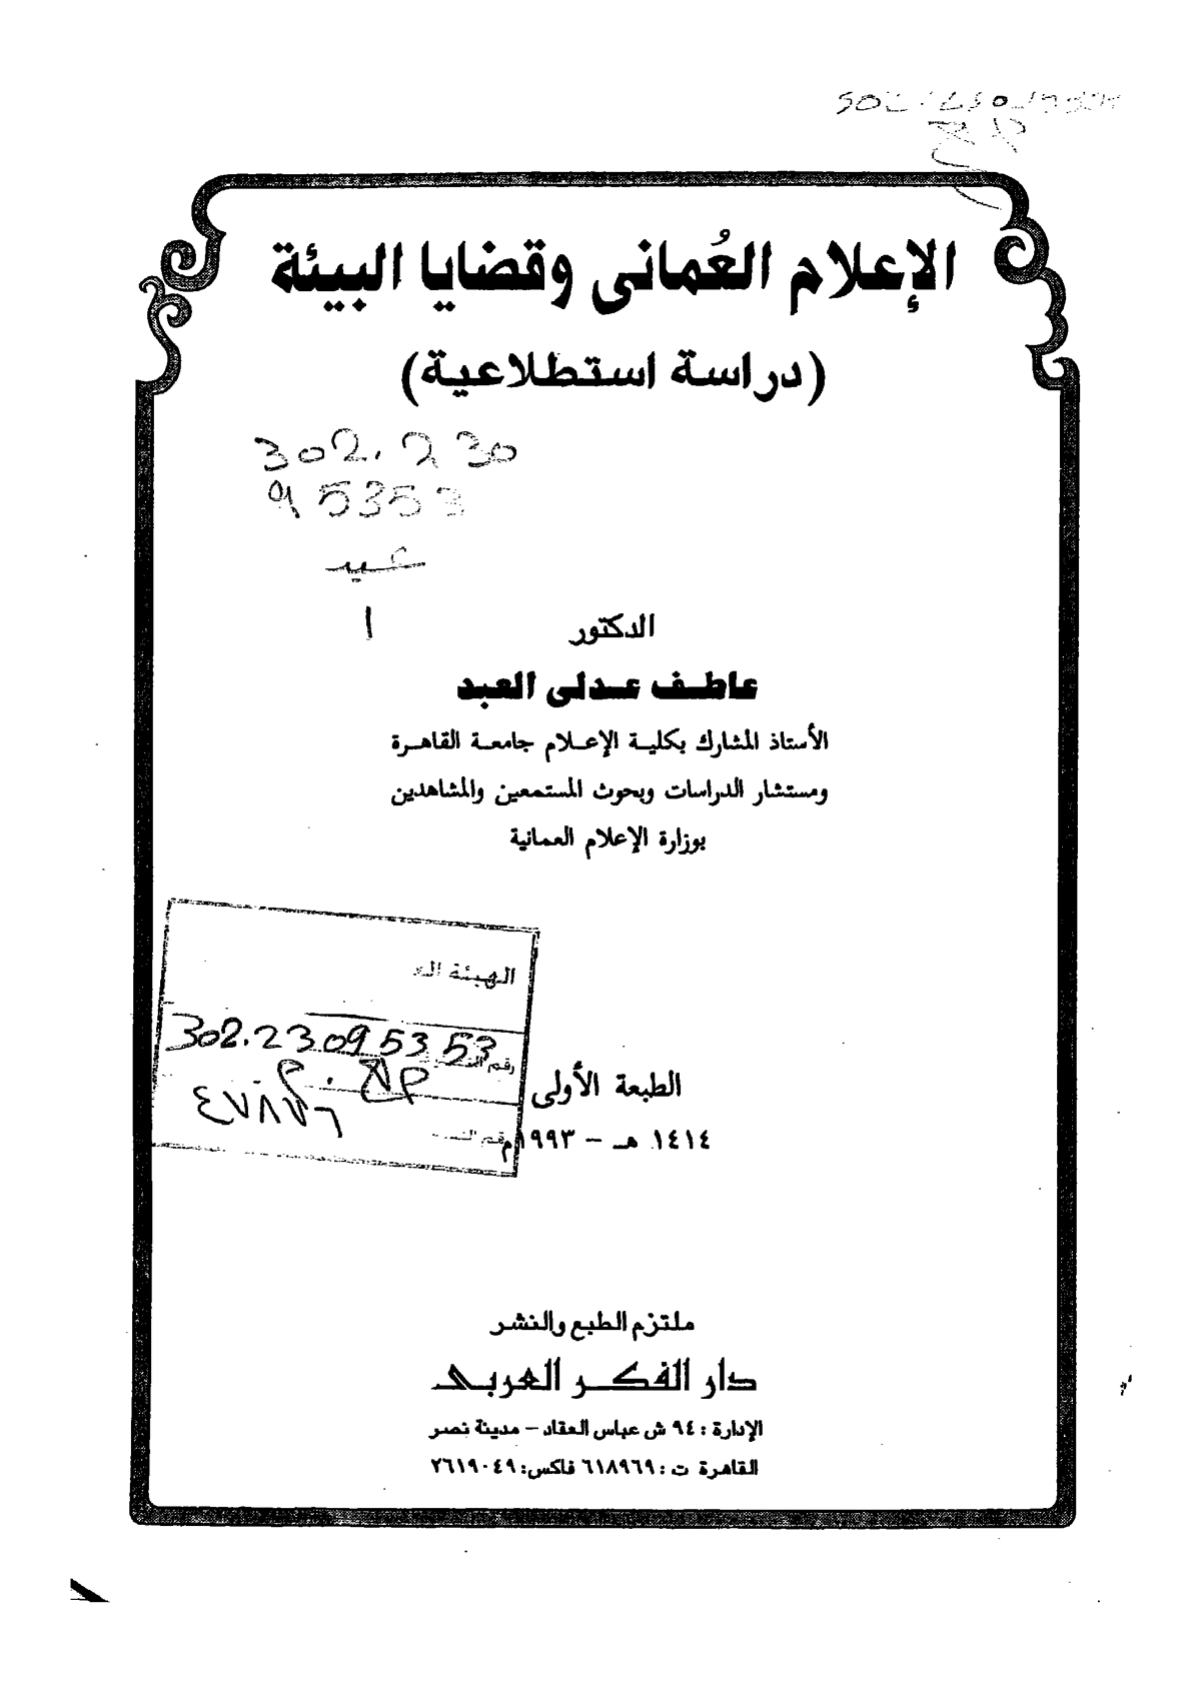 الإعلام العُمانى وقضايا البيئة
(دراسة استطلاعية)
302.230
95353
عبد
ا
الدكتور
عاطف عدلى العبد
الأستاذ المشارك بكلية الإعلام جامعة القاهرة
ومستشار الدراسات وبحوث المستمعين والمشاهدين
بوزارة الإعلام العمانية
الهيئة
302.23095353
رقم
٤٧٨٧٦
رقم
الطبعة الأولى
١٤١٤ هـ – ١٩٩٣م
ملتزم الطبع والنشر
دار الفكر العربى
الإدارة : ٩٤ ش عباس العقاد – مدينة نصر
القاهرة ت : ٦١٨٩٦٩ فاكس: ٢٦١٩٠٤٩